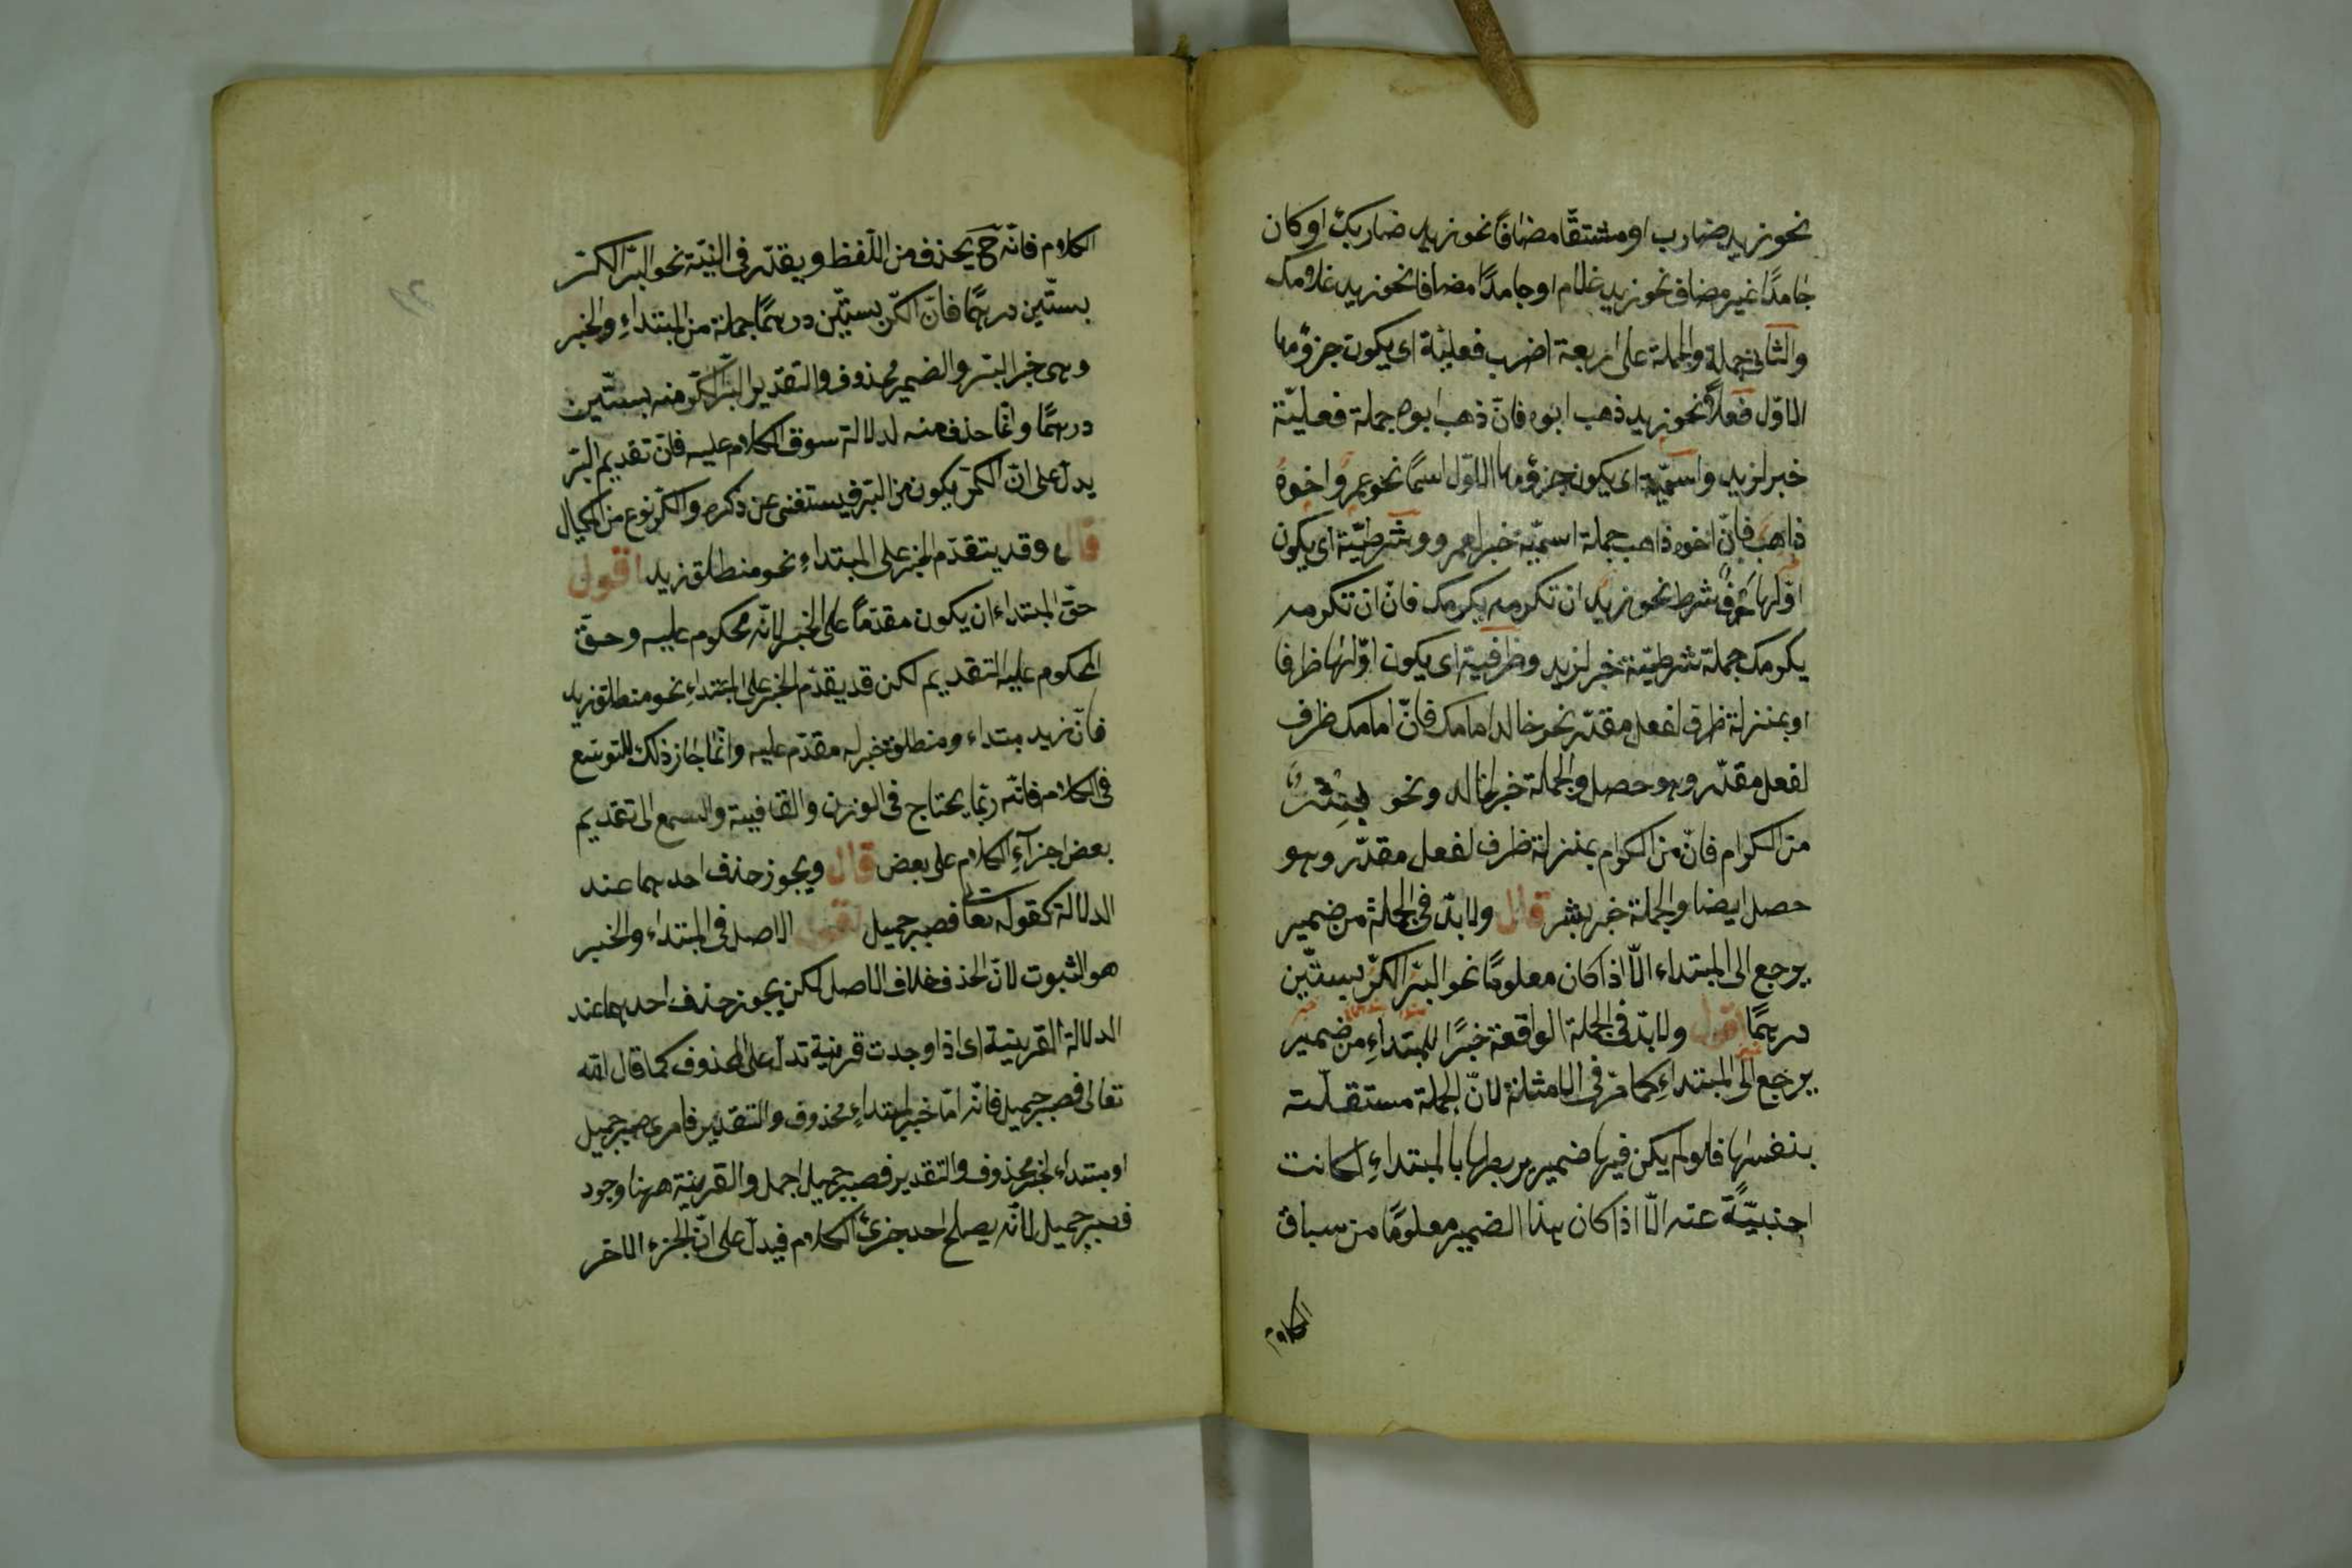 نحو زيد ضارب او مشتقّا مضافًا نحو زيد ضاربك او كان
جامدًا غير مضاف نحو زيد غلام او جامدًا مضافا نحو زيد غلامك
والثانى جملة والجملة على اربعة اضرب فعليّة اى يكون جزؤها
الاوّل فعلاً نحو زيد ذهب ابوه فانّ ذهب ابوه جملة فعليّة
خبر لزيد واسميّة اى يكون جزؤها الاوّل اسمًا نحو عمرو اخوه
ذاهب فانّ اخوه ذاهب جملة اسميّة خبر لعمرو وشرطيّة اى يكون
اوّلها حرف شرط نحو زيد ان تكرمه يكرمك فانّ ان تكرمه
يكرمك جملة شرطيّة خبر لزيد وظرفية اى يكون اوّلها ظرفا
او بمنزلة ظرف لفعل مقدّر نحو خالد امامك فانّ امامك ظرف
لفعل مقدّر وهو حصل والجملة خبر لخالد ونحو بشر
من الكرام فانّ من الكرام بمنزلة ظرف لفعل مقدّر وهو
حصل ايضا والجملة خبر بشر قال ولا بدّ فى الجملة من ضمير
يرجع الى المبتداء الّا اذا كان معلومًا نحو البرّ الكرّ بستّين
درهمًا اقول ولا بدّ فى الجملة الواقعة خبرًا للمبتداءِ من ضمير
يرجع الى المبتداءِ كما مرّ فى الامثلة لانّ الجملة مستقلّة
بنفسها فلو لم يكن فيها ضمير يربطها بالمبتداءِ لكانت
اجنبيّةً عنه الّا اذا كان هذا الضمير معلومًا من سياق
الكلام
الكلام فانّه ح يحذف من اللّفظ ويقدّر فى النيّة نحو البرّ الكرّ
بستّين درهمًا فانّ الكرّ بستيّن درهمًا جملة من المبتداءِ والخبر
وهى خبر البرّ والضمير محذوف والتقدير البرّ الكرّ منه بستّين
درهمًا وانّما حذف منه لدلالة سوق الكلام عليه فانّ تقديم البرّ
يدلّ على انّ الكرّ يكون من البرّ فيستغنى عن ذكره والكرّ نوع من المكيال
قال وقد يتقدّم الخبر على المبتداءِ نحو منطلق زيد اقول
حقّ المبتداء ان يكون مقدّمًا على الخبر لانّه محكوم عليه وحقّ
المحكوم عليه التقديم لكن قد يقدّم الخبر على المبتداءِ نحو منطلق زيد
فانّ زيد مبتداء ومنطلق خبر له مقدّم عليه وانّما جاز ذلك للتوسّع
فى الكلام فانّه ربّما يحتاج فى الوزن والقافية والسجع الى تقديم
بعض اجزآءِ الكلام على بعض قال ويجوز حذف احدهما عند
الدلالة كقوله تعالى فصبر جميل اقول الاصل فى المبتداء والخبر
هو الثبوت لانّ الحذف خلاف الاصل لكن يجوز حذف احدهما عند
الدلالة القرينية اى اذا وجدت قرينة تدلّ على المحذوف كما قال الله
تعالى فصبر جميل فانّه امّا خبر لمبتداءٍ محذوف والتقدير فامرى صبر جميل
او مبتداء لخبر محذوف والتقدير فصبر جميل اجمل والقرينة ههنا وجود
فصبر جميل لانّه يصلح احد جزئ الكلام فيدلّ على انّ الجزء الاخر